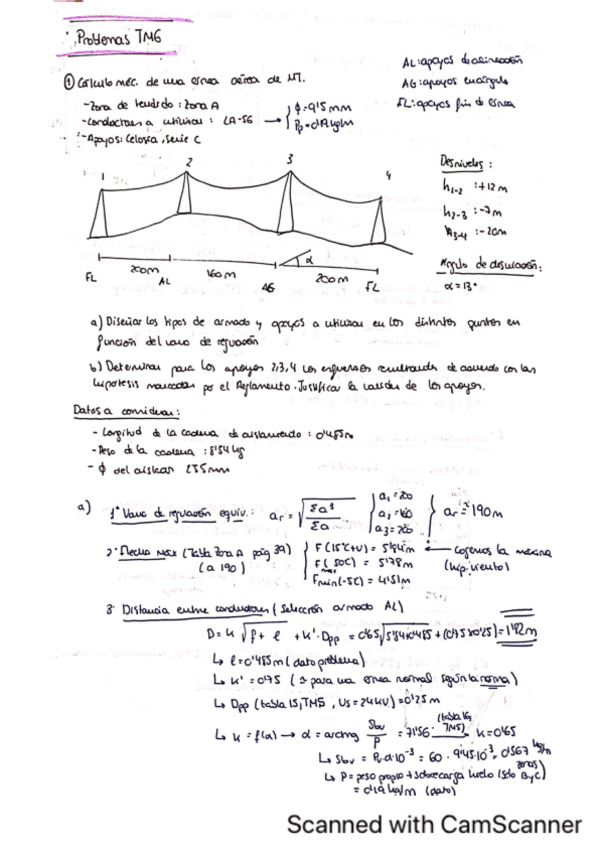 Problemas TM6
AL: apoyos de alineación
AG: apoyos en ángulo
FL: apoyos fin de línea
① Cálculo méc. de una línea aérea de MT.
- Zona de tendido: Zona A
- Conductores a utilizar: LA-56 → ϕ = 9'45 mm
Pp = 0'19 kg/m
- Apoyos: Celosía, Serie C
1 2 3 4
Desniveles:
h1-2 : +12 m
h2-3 : -7 m
h3-4 : -20m
200m 160m α 200m
FL AL AG FL
Angulo de desviación:
α = 13°
a) Diseñar los tipos de armado y apoyos a utilizar en los distintos puntos en
función del vano de regulación
b) Determinar para los apoyos 2,3,4 los esfuerzos resultantes de acuerdo con las
hipótesis marcadas por el Reglamento. Justificar la validez de los apoyos.
Datos a considerar:
- Longitud de la cadena de aislamiento: 0'485m
- Peso de la cadena: 8'54 kg
- ϕ del aislador 255mm
a) 1° Vano de regulación equiv.: ar = √(Σa³/Σa) a1 = 200 a2 = 160 a3 = 200 ar = 190m
2° Flecha Max (Tabla Zona A pág 39) F(15°C+V) = 5'84m ← Cogemos la máxima
(a 190) F(50C) = 5'78m (hip. viento)
Fmin(-5C) = 4'51m
3° Distancia entre conductores (Selección armado AL)
D = K √(f + l) + K'·Dpp = 0'65√(5'84+0'485) + (0'75×0'25) = 1'82m
↳ l = 0'485m (dato problema)
↳ K' = 0'75 (para una línea normal según la norma)
↳ Dpp (tabla 15, TM5, Us = 24KV) = 0'25m
↳ K = f(α) → α = arctg Sbv/P = 71'56 (tabla 16 TM5) → K = 0'65
↳ Sbv = Pv·d·10⁻³ = 60 · 9'45·10⁻³ = 0'567 kg/m
↳ P = peso propio + sobrecarga hielo (solo ByC)
zonas
= 0'19 kg/m (dato)
Scanned with CamScanner